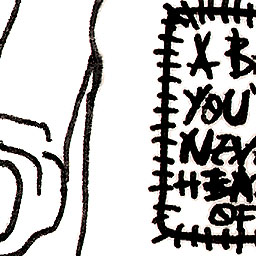 A B
YOU'
NEV
HEA
OF